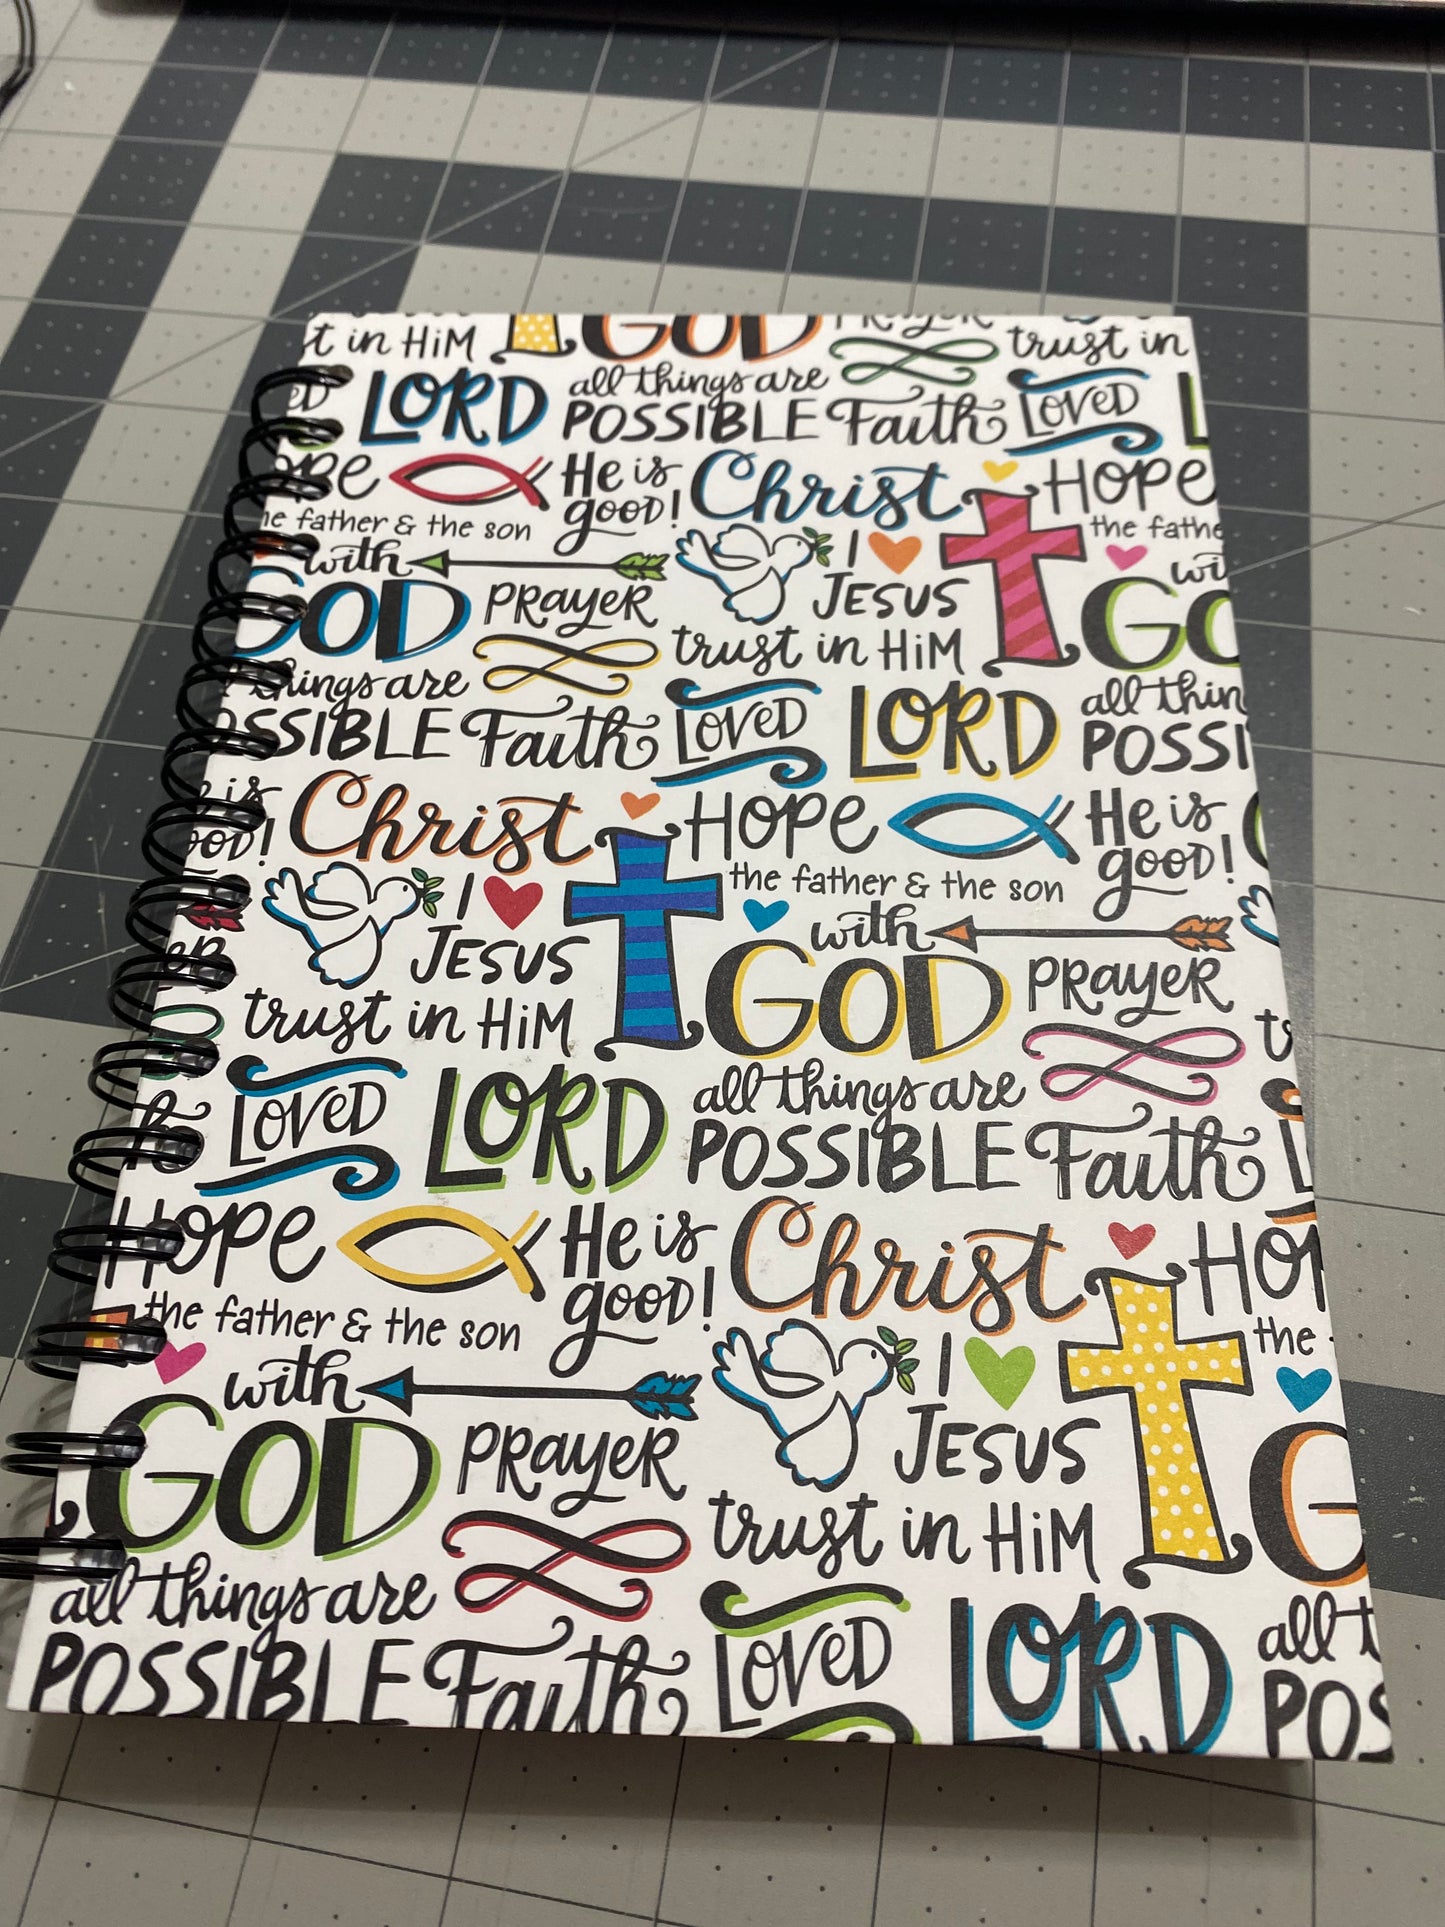 t in HiM GOD PRayeR trust in
LORD all things are POSSIBLE Faith LoveD
He is good! Christ HOPE
the father & the son
with I JESUS
GOD PRayeR trust in HiM GO
things are
POSSIBLE Faith LoveD LORD all thin
POSSI
Christ HOPE He is good!
I JESUS the father & the son
with
trust in HiM GOD PRayeR
LoveD LORD all things are
POSSIBLE Faith
HOPE He is good! Christ HOP
the father & the son the
with I JESUS
GOD PRayeR trust in HiM G
all things are
POSSIBLE Faith LoveD LORD all t
POS